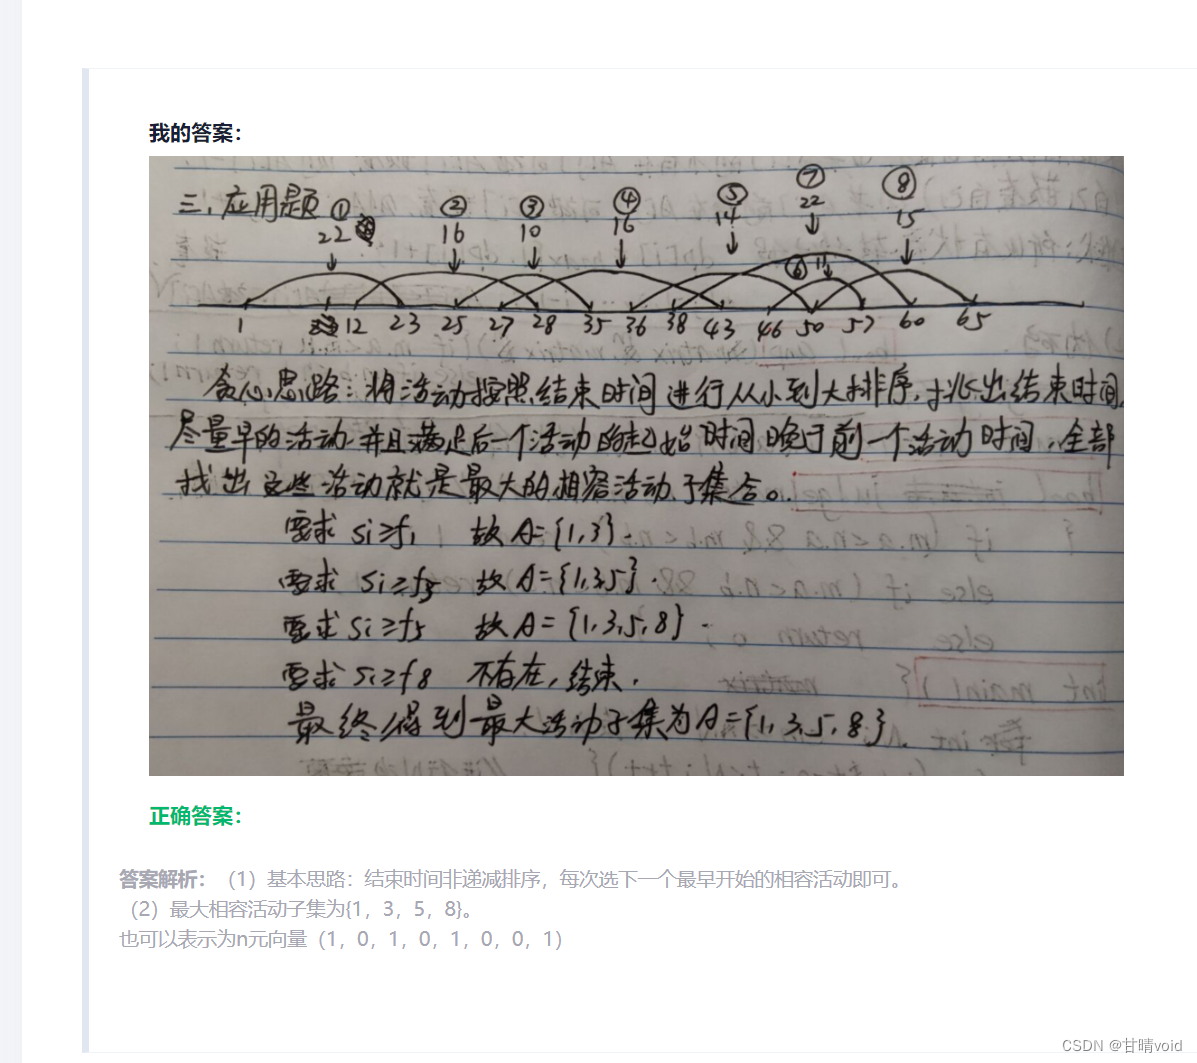 我的答案：
三、应用题
① ② ③ ④ ⑤ ⑦ ⑧
22 16 10 16 14 22 15
⑥ 11
1 12 23 25 27 28 35 36 38 43 46 50 57 60 65
贪心思路：将活动按照结束时间进行从小到大排序，挑出结束时间
尽量早的活动并且满足后一个活动的起始时间晚于前一个活动时间，全部
找出这些活动就是最大的相容活动子集合。
要求 si≥f1 故A={1,3}.
要求 si≥f3 故A={1,3,5}.
要求 si≥f5 故A={1,3,5,8}.
要求 si≥f8 不存在，结束.
最终得到最大活动子集为A={1,3,5,8}.
正确答案：
答案解析：（1）基本思路：结束时间非递减排序，每次选下一个最早开始的相容活动即可。
（2）最大相容活动子集为{1，3，5，8}。
也可以表示为n元向量（1，0，1，0，1，0，0，1）
CSDN @甘晴void